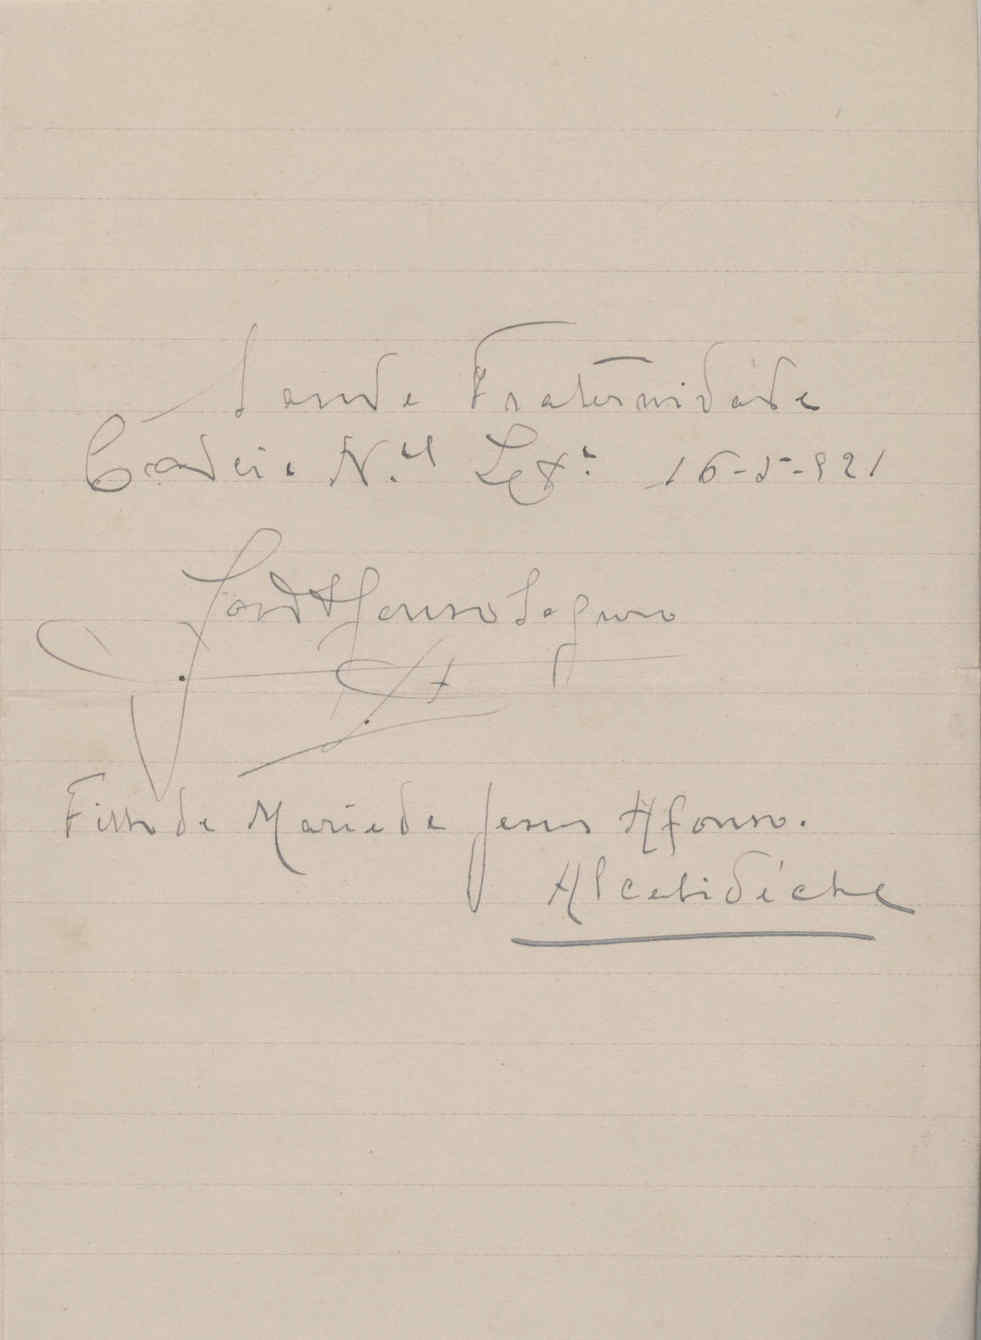 Saude Fraternidade
Cadeia N.al Lx.a 16-5-921
José Afonso Seguro
Filho de Maria de Jesus Afonso.
Alcabidéche